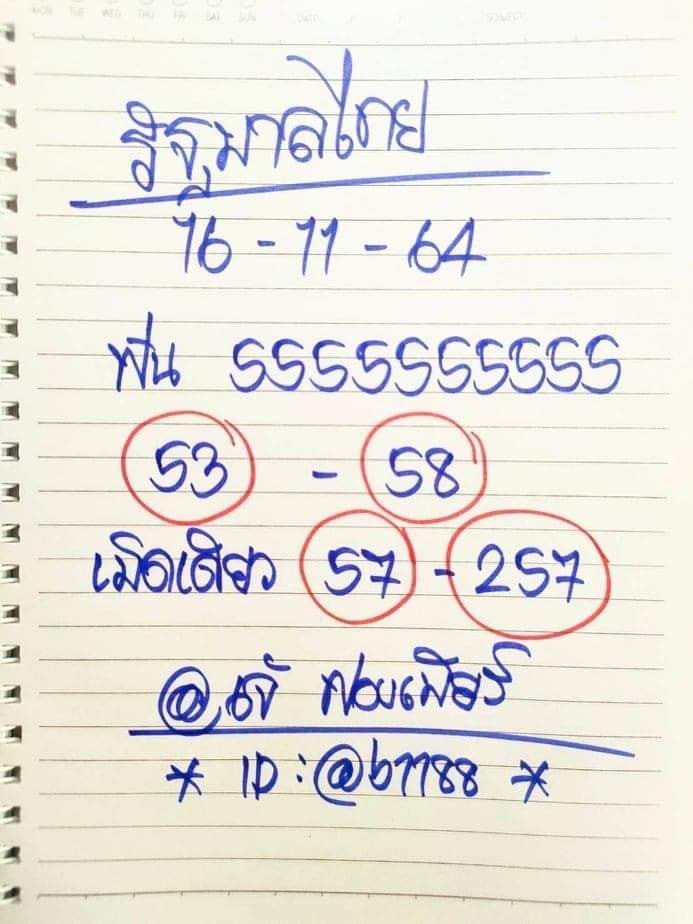 MON TUE WED THU FRI SAT SUN DATE SUBJECT
รัฐบาลไทย
16 - 11 - 64
ฟัน 55555555555
53 - 58
เม็ดเดียว 57 - 257
@เจ๊ ฟองเบียร์
* ID : @b1188 *